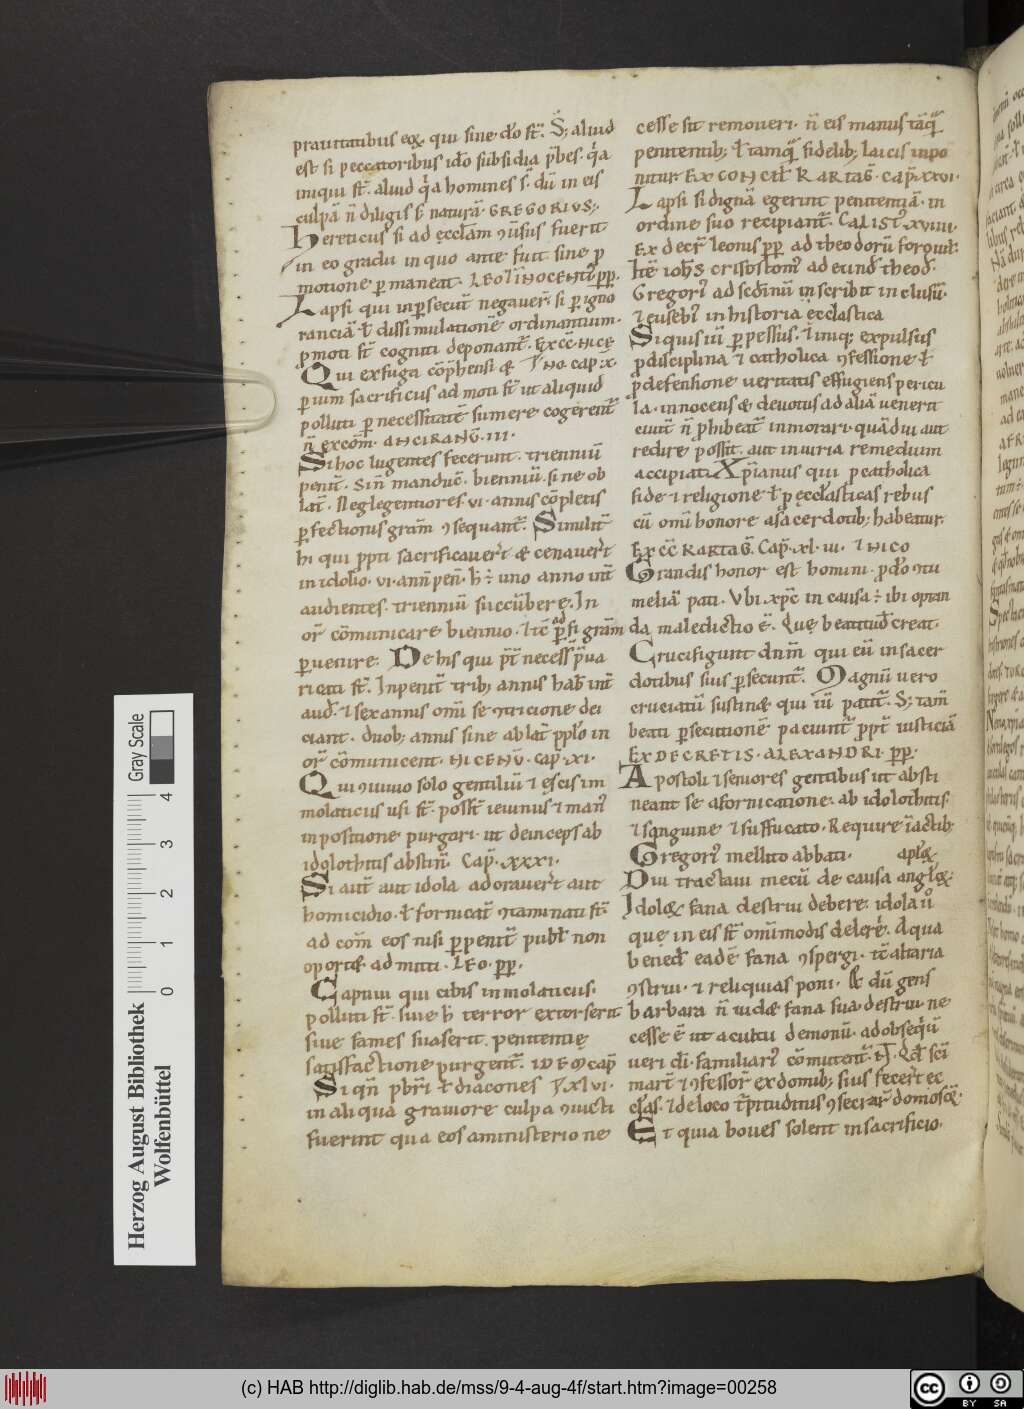 prauitatibus eoꝝ qui sine do st̄. S; aliud
est si peccatoribus ido subsidia p̄bes. q̄a
iniqui st̄. aliud q̄a homines s̄. dū in eis
culpā n̄ diligis s; naturā. GREGORIVS;
Hereticus si ad ęcclam ꝯuersus fuerit
in eo gradu in quo ante fuit sine p
motione ꝑmaneat. LEO INOCENTI PP.
Lapsi qui in ꝑsecut̄ negauer̄. si ꝑ igno
rantiā ł dissimulationē ordinantium.
ꝓmoti st̄ cogniti deponant̄. Ex CC HICE
Qui ex fuga cōp̄hensi & NO. cap. x.
ꝑ uim sacrificiis admoti st̄ ut aliquid
polluti ꝑ necessitatē sumere cogerent̄
n̄ excōm. ANCIRANV̄. III.
Si hoc lugentes fecerunt. trienniū
penit̄. Sin̄ manduc̄. bienniū. sine ob
lat̄. Neglegentiores. vi. annis cōpletis
ꝑfectionis gram̄ ꝯsequant̄. Similit̄
hi qui ppti sacrificauer̄t & cenauer̄t
in idolio. vi. ann̄ pen̄. h̄ ÷ uno anno int̄
audientes. trienniū succūbere. In
or̄ cōmunicare biennio. ⁊ tē ad ꝑfi gram̄
ꝑuenire. De his qui p̄t necess̄ p̄ua
ricati st̄. In penit̄ trib; annis hab̄ int̄
aud̄. ⁊ sex annis om̄i se ꝯtricione dei
ciant. duob; annis sine ablat̄ pplo in
or̄ cōmunicent. NICENV̄. cap. xi.
Qui ꝯuiuio solo gentiliū ⁊ ęscis im
molaticiis usi st̄. poss̄t ieiuniis ⁊ man̄
inpositione purgari. ut deinceps ab
idolothitis abstin̄. Cap̄. xxxi.
Si aut̄ aut idola adorauer̄t aut
homicidio. ł fornicat̄ ꝯtaminati st̄.
ad cōm eos nisi ꝑ penit̄ publ̄ non
oportet admitti. LEO. PP.
Captiui qui cibis inmolaticiis.
polluti st̄. siue h̄ terror extorserit
siue fames suaserit. penitentię
satisfactione purgent̄. IDEM cap̄
Si qn̄ p̄bri ł diacones xlvi.
in aliqua grauiore culpa ꝯuicti
fuerint qua eos a ministerio ne
cesse sit remoueri. n̄ eis manus tāq̄
penitentib; ł tamq̄ fidelib; laicis inpo
nitur. EX CONCIL̄ KARTAḠ. Cap̄. xxvi.
Lapsi si dignā egerint penitentiā. in
ordine suo recipiant̄. CALIST. xviiii.
Ex decr̄ leonis pp̄ ad theodorū foroiuł.
Itē ioh̄s crisostom ad eund̄ theod̄.
Gregor̄ ad scd̄inū inscribit in clusū.
⁊ euseb̄ in historia ęcclastica
Si quis iū ꝑpessus. ⁊ iniq; expulsus
ꝓ disciplina ⁊ catholica ꝯfessione ł
ꝓ defensione ueritatis effugiens pericu
la. innocens & deuotus ad aliā uenerit
ciuit̄ n̄ ꝓhibeat̄ inmorari. quādiu aut
redire possit̄. aut iniuria remedium
accipiat. Xp̄ianus qui ꝓ catholica
fide ⁊ religione ł ꝓ ęcclasticas rebus
cū om̄i honore a sacerdotib; habeatur.
EX CC KARTAḠ. Cap̄. xl. iii. ⁊ NICO
Grandis honor est homini. ꝓ do ꝯtu
meliā pati. Vbi xp̄c in causa ÷ ibi optan
da maledictio ē. Quę beatitud̄ creat.
Crucifigunt dn̄m qui eū in sacer
dotibus suis ꝑsecunt̄. Magnū uero
cruciatū sustinet qui iū patit̄. S; tam̄
beati ꝑsecutionē paciunt̄ ꝓpt̄ iusticiā
EX DECRETIS. ALEXANDRI. PP.
Apostoli ⁊ seniores gentibus ut absti
neant se a fornicatione. ab idolothitis.
⁊ sanguine ⁊ suffucato. Require ī actib;
Gregor̄ mellito abbati. aplꝝ
Diu tractaui mecū de causa anglꝝ.
Idolꝝ fana destrui debere. idola ū
que in eis st̄ om̄imodis delere. Aqua
bened̄ eadē fana ꝯspergi. tē altaria
ꝯstrui. ⁊ reliquias poni. & dū gens
barbara n̄ uidet fana sua. destrui ne
cesse ē ut a cultu demonū. ad obseq̄ū
ueri di. familiar̄ cōmutent̄. ET. Qd̄ scī
mart̄ ⁊ ꝯfessor̄ ex domib; suis fecer̄t ec
clas. ⁊ de loco t̄pitudinis ꝯsecrar̄ domos q̄.
Et quia boues solent in sacrificio.
Gray Scale
0 1 2 3 4
Herzog August Bibliothek
Wolfenbüttel
(c) HAB http://diglib.hab.de/mss/9-4-aug-4f/start.htm?image=00258
CC BY SA